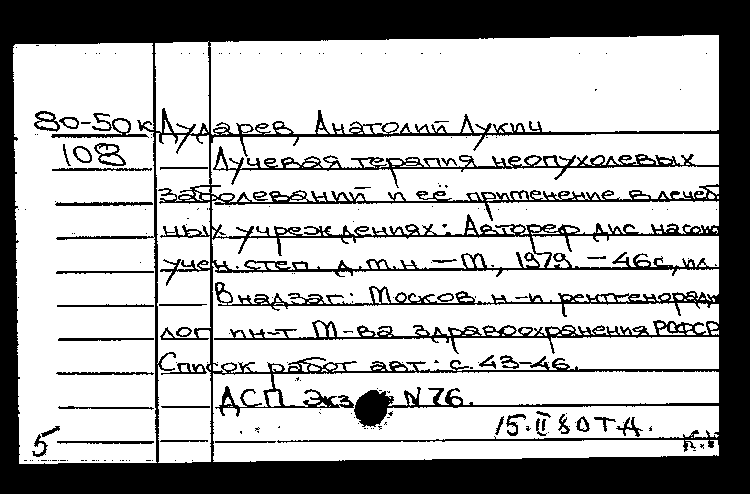 80-50к Дударев, Анатолий Лукич
108 Лучевая терапия неопухолевых
заболеваний и её применение в лечеб
ных учреждениях: Автореф дис на соис
учен. степ. д.м.н. — М., 1979. — 46с, ил.
В надзаг.: Москов. н-и рентгенорадио
лог ин-т М-ва здравоохранения РСФСР
Список работ авт.: с. 43-46.
ДСП Экз N 76.
15.II 80 Т-А.
5